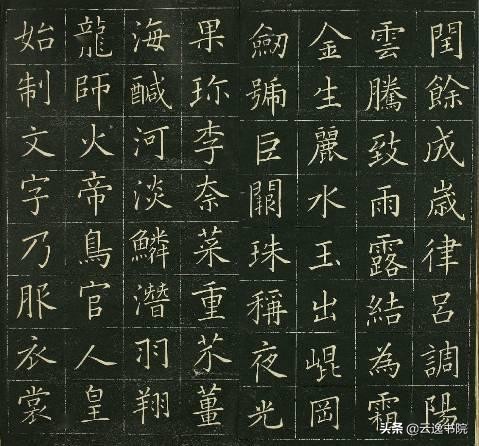 閏餘成歳律呂調陽
雲騰致雨露結為霜
金生麗水玉出崐岡
劒號巨闕珠稱夜光
果珎李奈菜重芥薑
海鹹河淡鱗潛羽翔
龍師火帝鳥官人皇
始制文字乃服衣裳
头条 @云逸书院